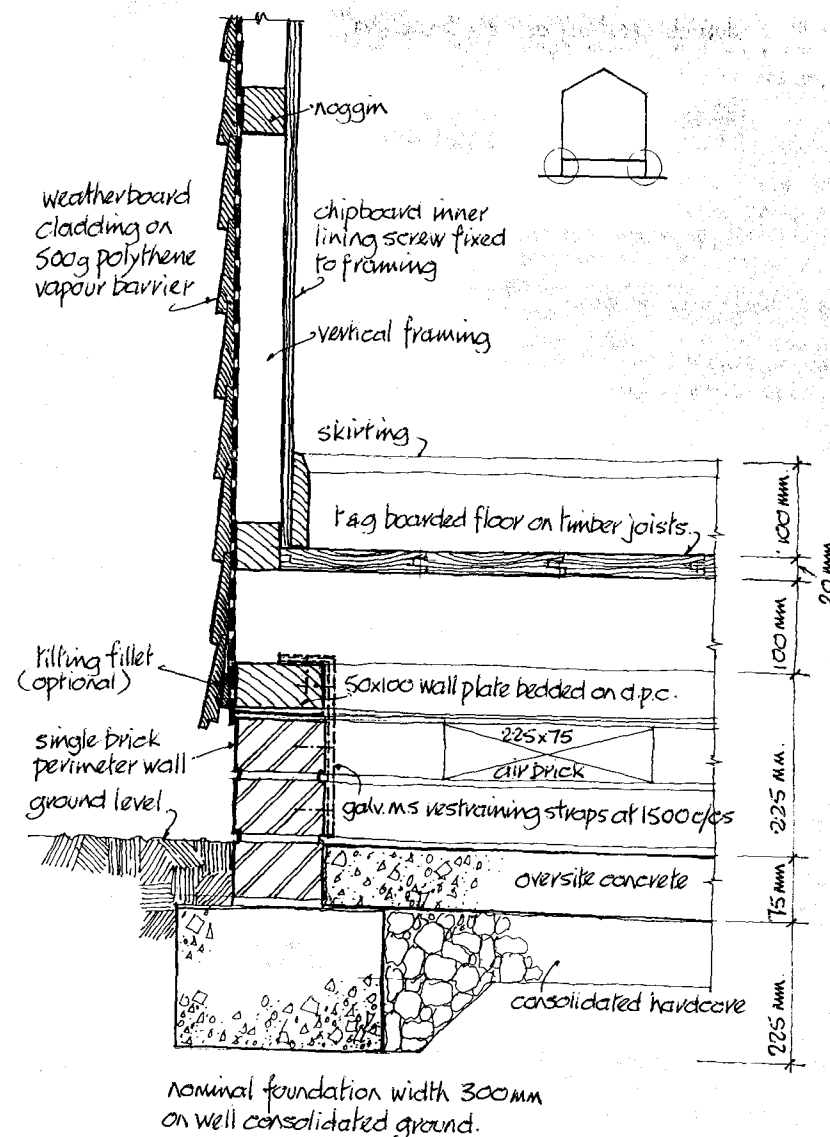 noggin
weatherboard
cladding on
500g polythene
vapour barrier
chipboard inner
lining screw fixed
to framing
vertical framing
skirting
t&g boarded floor on timber joists.
100 mm.
20 mm
100 mm
tilting fillet
(optional)
50x100 wall plate bedded on d.p.c.
single brick
perimeter wall
225x75
air brick
ground level
galv. m.s restraining straps at 1500 c/cs
225 mm.
oversite concrete
75 mm
consolidated hardcore
225 mm
nominal foundation width 300mm
on well consolidated ground.